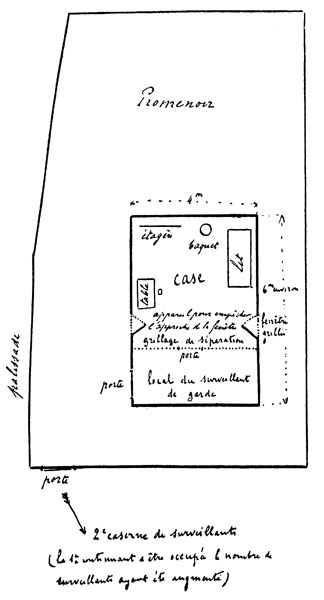 Promenoir
4m
étagère
baquet
lit
case
6m environ
table
appareil pour empêcher
l'approche de la fenêtre
fenêtre
grillée
grillage de séparation
porte
palissade
porte
local du surveillant
de garde
porte
2e caserne de surveillants
(la 1re continuant à être occupée le nombre de
surveillants ayant été augmenté)